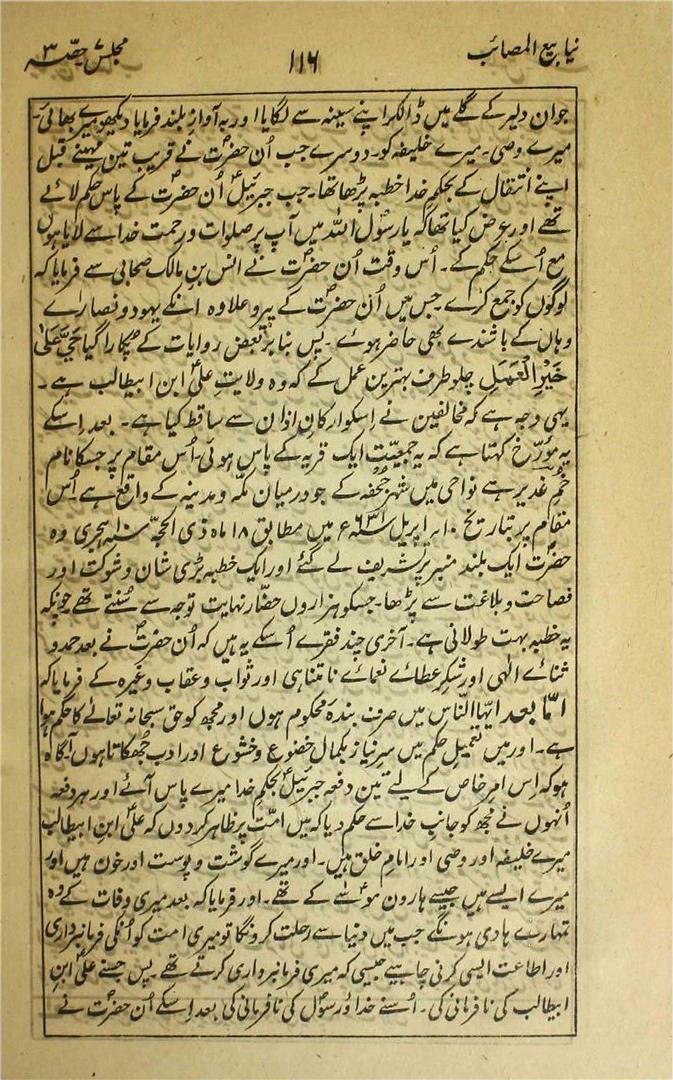 نیا بیع المصائب ۱۱۶ مجلس ۷ حصّہ ۳
جوان دلیر کے گلے میں ڈالکر اپنے سینہ سے لگایا اور بہ آواز بلند فرمایا دیکھو میرے بھائی۔
میرے وصی۔ میرے خلیفہ کو۔ دوسرے جب اُن حضرتؐ نے قریب تین مہینے قبل
اپنے انتقال کے بحکم خدا خطبہ پڑھا تھا۔ جب جبرئیلؑ اُن حضرتؐ کے پاس حکم لائے
تھے اور عرض کیا تھا کہ یا رسولؐ اللہ میں آپ پر صلوات و رحمت خدا سے لایا ہوں
مع اُسکے حکم کے۔ اُس وقت اُن حضرتؐ نے انس بن مالک صحابی سے فرمایا کہ
لوگوں کو جمع کرائے جس میں اُن حضرتؐ کے پیرو علاوہ انکے یہود و نصارے
وہاں کے باشندے بھی حاضر ہوئے۔ پس بنا بر بعض روایات کے پکارا گیا حَیَّ عَلیٰ
خَیْرِ الْعَمَلِ چلو طرف بہترین عمل کے کہ وہ ولایت علیؑ ابن ابیطالب ہے۔
یہی وجہ ہے کہ مخالفین نے اِسکو ارکانِ اذان سے ساقط کیا ہے۔ بعد اِسکے
یہ مورّخ کہتا ہے کہ یہ جمعیّت ایک قریہ کے پاس ہوئی۔ اُس مقام پر جسکا نام
خُمِّ غدیر ہے نواحی میں شہر جُحفہ کے جو درمیان مکّہ و مدینہ کے واقع ہے اُس
مقام پر بتاریخ ۱۰ اپریل ۶۳۱؁ء میں مطابق ۱۸ ماہ ذی الحجّہ ۱۰؁ ہجری وہ
حضرتؐ ایک بلند منبر پر تشریف لے گئے اور ایک خطبہ بڑی شان و شوکت اور
فصاحت و بلاغت سے پڑھا۔ جسکو ہزاروں حضّار نہایت توجہ سے سُنتے تھے چونکہ
یہ خطبہ بہت طولانی ہے۔ آخری چند فقرے اُسکے یہ ہیں کہ اُن حضرتؐ نے بعد حمد و
ثنائے الٰہی اور شکر عطائے نعمائے نا متناہی اور ثواب و عقاب وغیرہ کے فرمایا کہ
امّا بعد ایّہا النّاس میں صرف بندہ محکوم ہوں اور مجھ کو حق سبحانہ تعالےٰ کا حکم ہوا
ہے۔ اور میں تعمیل حکم میں سر نیاز بکمال خضوع و خشوع اور ادب جُھکاتا ہوں آگاہ
ہو کہ اِس امر خاص کے لیے تین دفعہ جبرئیلؑ بحکم خدا میرے پاس آئے اور ہر دفعہ
اُنہوں نے مجھ کو جانب خدا سے حکم دیا کہ میں امّت پر ظاہر کردوں کہ علیؑ ابن ابیطالب
میرے خلیفہ اور وصی اور امام خلق ہیں۔ اور میرے گوشت و پوست اور خون ہیں اور
میرے ایسے ہیں جیسے ہارون موسٰےؑ کے تھے۔ اور فرمایا کہ بعد میری وفات کے وہ
تمہارے ہادی ہونگے جب میں دنیا سے رحلت کرونگا تو میری امت کو اُنکی فرمانبرداری
اور اطاعت ایسی کرنی چاہیے جیسی کہ میری فرمانبرواری کرتے تھے۔ پس جسنے علیؑ ابن
ابیطالب کی نافرمانی کی۔ اُسنے خدا و رسولؐ کی نافرمانی کی بعد اِسکے اُن حضرتؐ نے